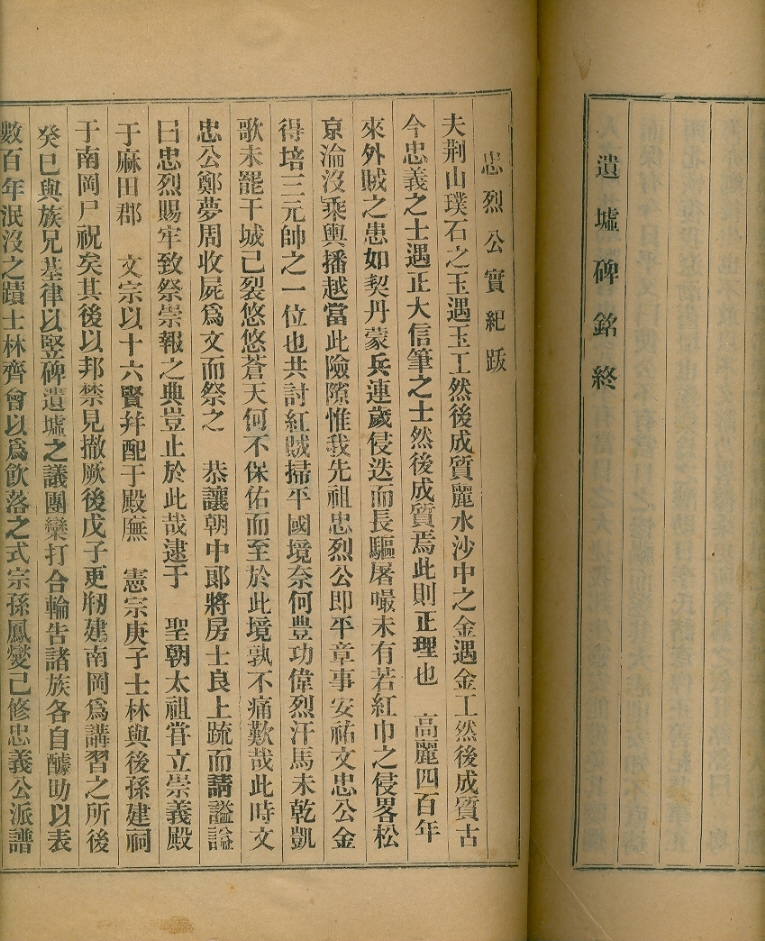 遺墟碑銘終
忠烈公實紀跋
夫荆山璞石之玉遇玉工然後成質麗水沙中之金遇金工然後成質古
今忠義之士遇正大信筆之士然後成質焉此則正理也 高麗四百年
來外賊之患如契丹蒙兵連歲侵迭而長驅屠嘬未有若紅巾之侵畧松
京淪沒乘輿播越當此險隂惟我先祖忠烈公即平章事安祐文忠公金
得培三元帥之一位也共討紅賊掃平國境奈何豊功偉烈汗馬未乾凱
歌未罷干城已裂悠悠蒼天何不保佑而至於此境孰不痛歎哉此時文
忠公鄭夢周收屍爲文而祭之 恭讓朝中郞將房士良上䟽而請謚謚
曰忠烈賜牢致祭崇報之典豈止於此哉逮于 聖朝太祖甞立崇義殿
于麻田郡 文宗以十六賢并配于殿廡 憲宗庚子士林與後孫建祠
于南岡尸祝矣其後以邦禁見撤厥後戊子更刱建南岡爲講習之所後
癸巳與族兄基律以竪碑遺墟之議團欒打合輪告諸族各自醵助以表
數百年泯沒之蹟士林齊會以爲飮落之式宗孫鳳燮已修忠義公派譜